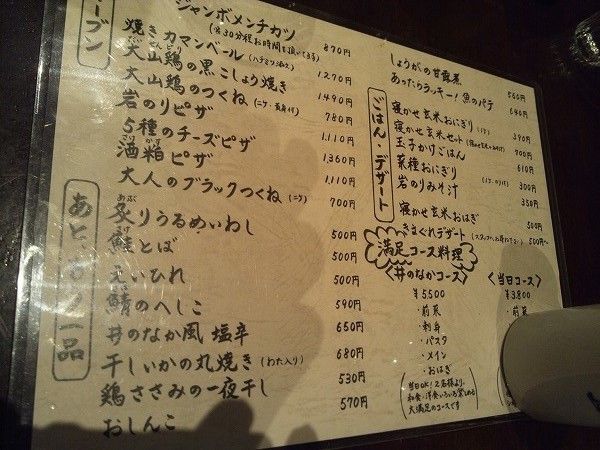 オーブン
ジャンボメンチカツ 870円
(※30分程お時間を頂いてます)
焼きカマンベール(ハチミツ添え) 1,270円
大山鶏の黒こしょう焼き 1,490円
大山鶏のつくね 780円
岩のりピザ 1,110円
5種のチーズピザ 1,360円
酒粕ピザ 1,110円
大人のブラックつくね(ニケ) 700円
あと一品
炙りうるめいわし 500円
鮭とば 500円
えいひれ 500円
鯖のへしこ 590円
井のなか風 塩辛 650円
干しいかの丸焼き(わた入り) 680円
鶏ささみの一夜干し 530円
おしんこ 570円
しょうがの甘露煮 560円
あったらラッキー!魚のパテ 640円
ごはん・デザート
寝かせ玄米おにぎり 390円
寝かせ玄米セット 700円
玉子かけごはん 610円
菜種おにぎり 300円
岩のりみそ汁 350円
寝かせ玄米おはぎ 500円
きまぐれデザート 500円~
満足コース料理
<井のなかコース>
¥5,500
・前菜
・刺身
・パスタ
・メイン
・おはぎ
当日OK!2名様より。
和食・洋食いろいろ楽しめる
大満足のコースです
<当日コース>
¥3,800
・前菜